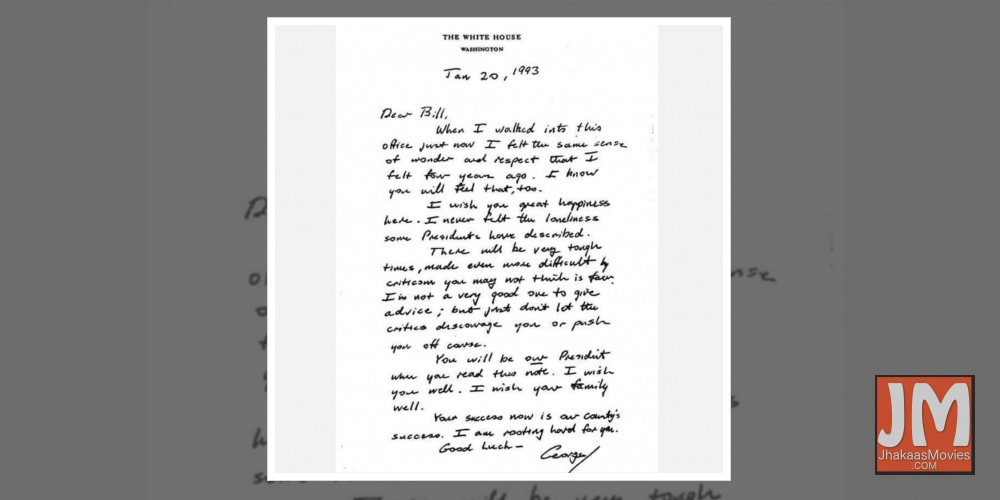 THE WHITE HOUSE
WASHINGTON
Jan 20, 1993
Dear Bill,
When I walked into this
office just now I felt the same sense
of wonder and respect that I
felt four years ago. I know
you will feel that, too.
I wish you great happiness
here. I never felt the loneliness
some Presidents have described.
There will be very tough
times, made even more difficult by
criticism you may not think is fair.
I'm not a very good one to give
advice; but just don't let the
critics discourage you or push
you off course.
You will be our President
when you read this note. I wish
you well. I wish your family
well.
Your success now is our county's
success. I am rooting hard for you.
Good Luck—
George
JM
JhakaasMovies
.COM